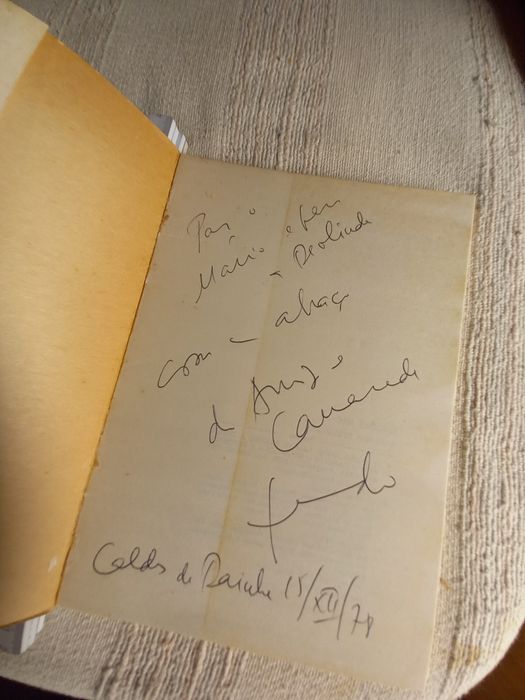 Para o
Mário e para
a Deolinda
com um abraço
do amigo e
Camarada
Caldas da Rainha 15/XII/78